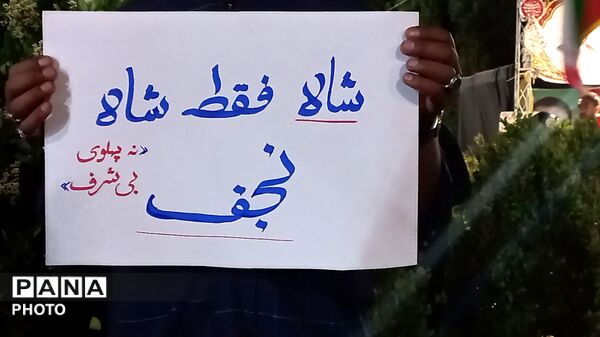 شاه فقط شاه
نجف
«نه پهلوی
بی شرف»
PANA
PHOTO